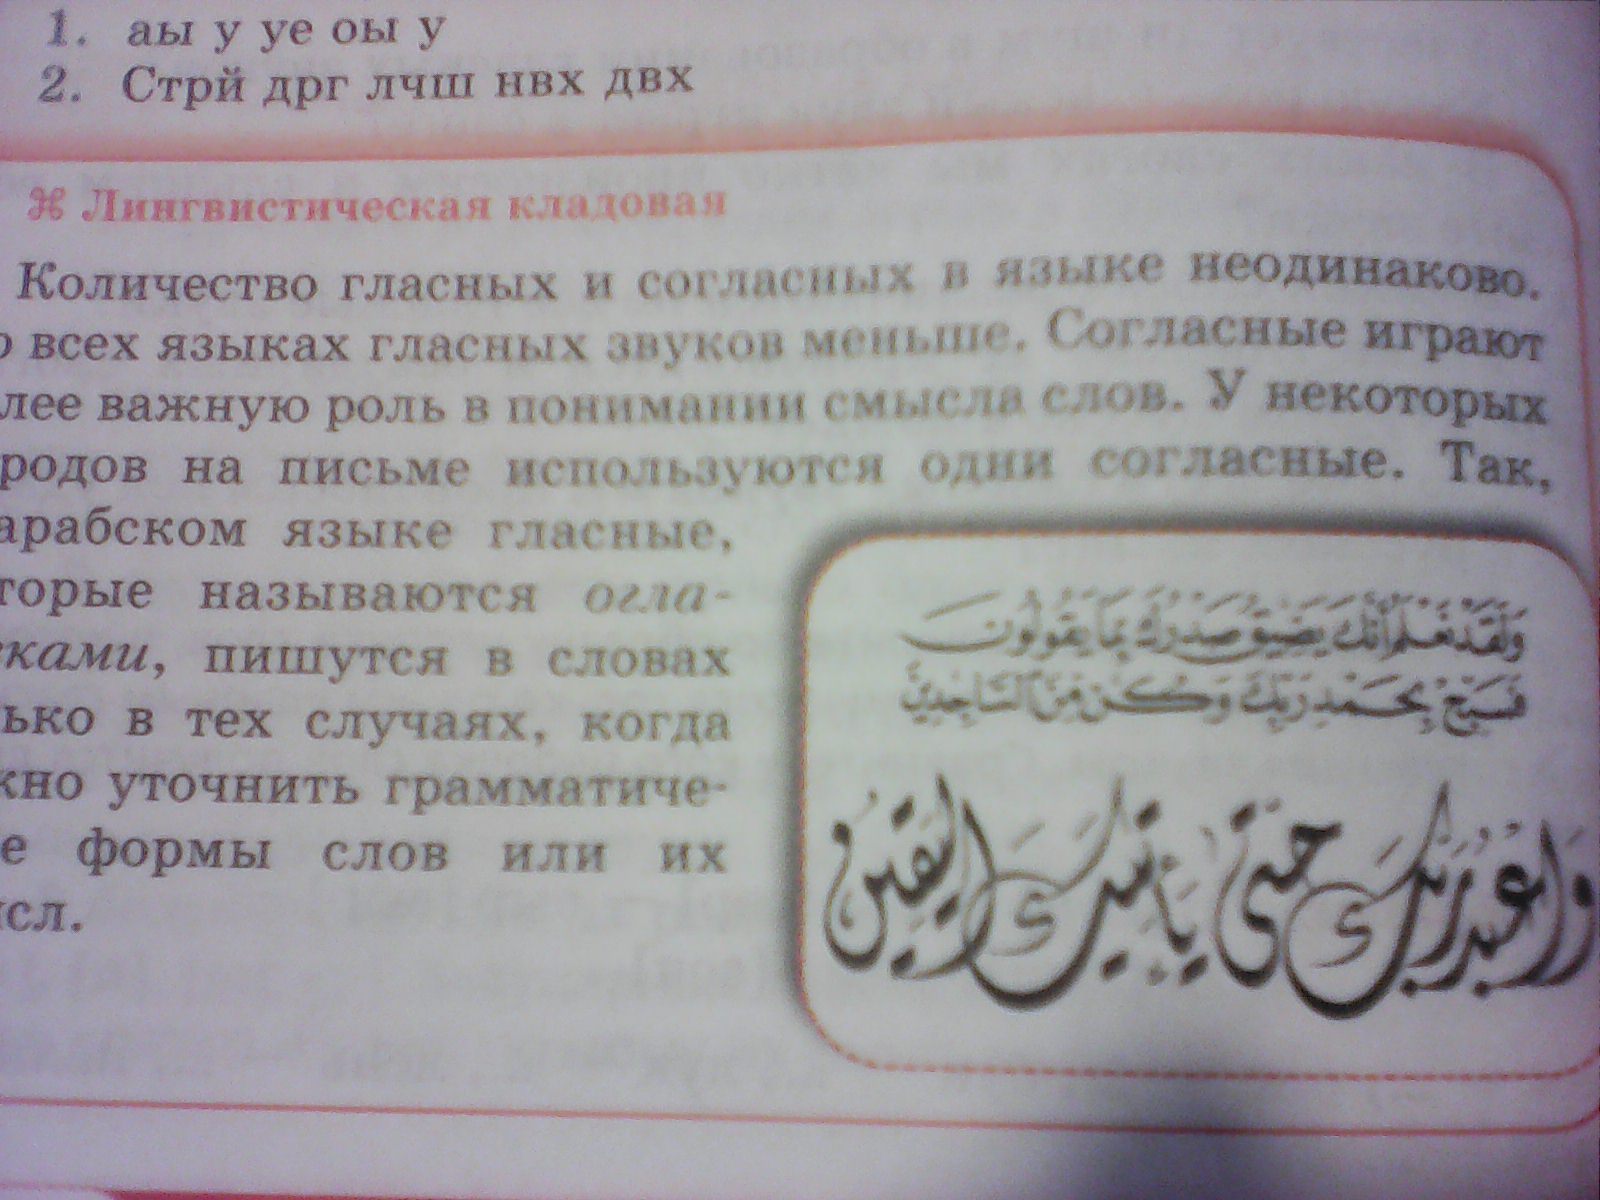 1. аы у уе оы у
2. Стрй дрг лчш нвх двх
⌘ Лингвистическая кладовая
Количество гласных и согласных в языке неодинаково.
о всех языках гласных звуков меньше. Согласные играют
лее важную роль в понимании смысла слов. У некоторых
родов на письме используются одни согласные. Так,
арабском языке гласные,
торые называются огла-
ками, пишутся в словах
ько в тех случаях, когда
жно уточнить грамматиче-
е формы слов или их
сл.
وَلَقَدْ نَعْلَمُ أَنَّكَ يَضِيقُ صَدْرُكَ بِمَا يَقُولُونَ
فَسَبِّحْ بِحَمْدِ رَبِّكَ وَكُن مِّنَ السَّاجِدِينَ
وَاعْبُدْ رَبَّكَ حَتَّى يَأْتِيَكَ الْيَقِينُ